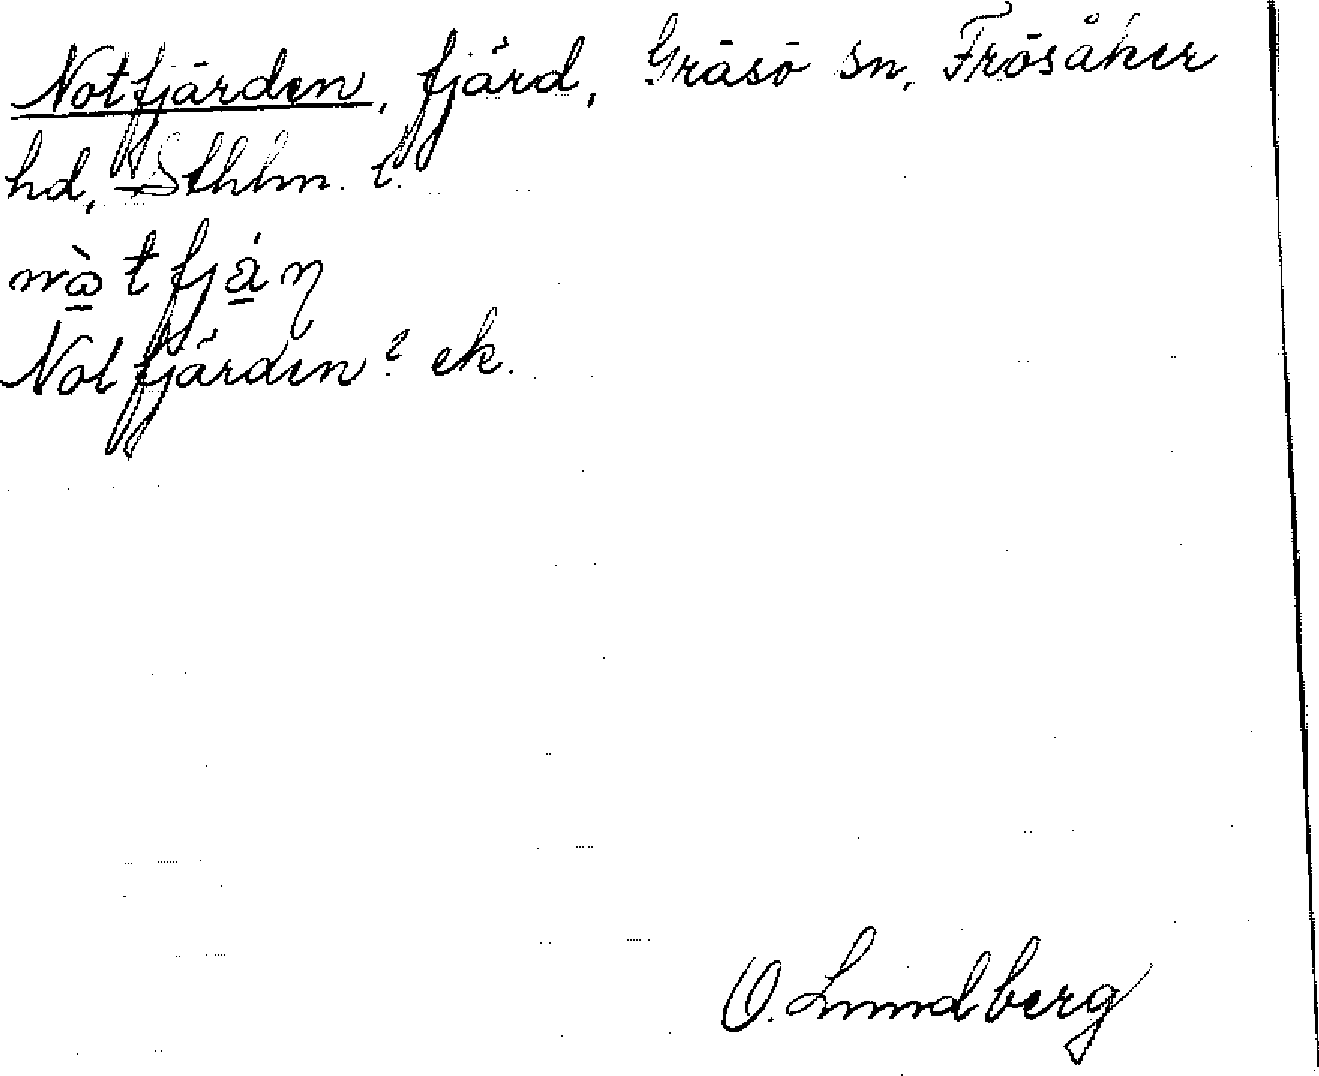 Notfjärden, fjärd, Gräsö sn, Frösåker
hd, Sthlm. l.
nòt fjä́ṇ
Notfjärden? ek.
O. Lundberg